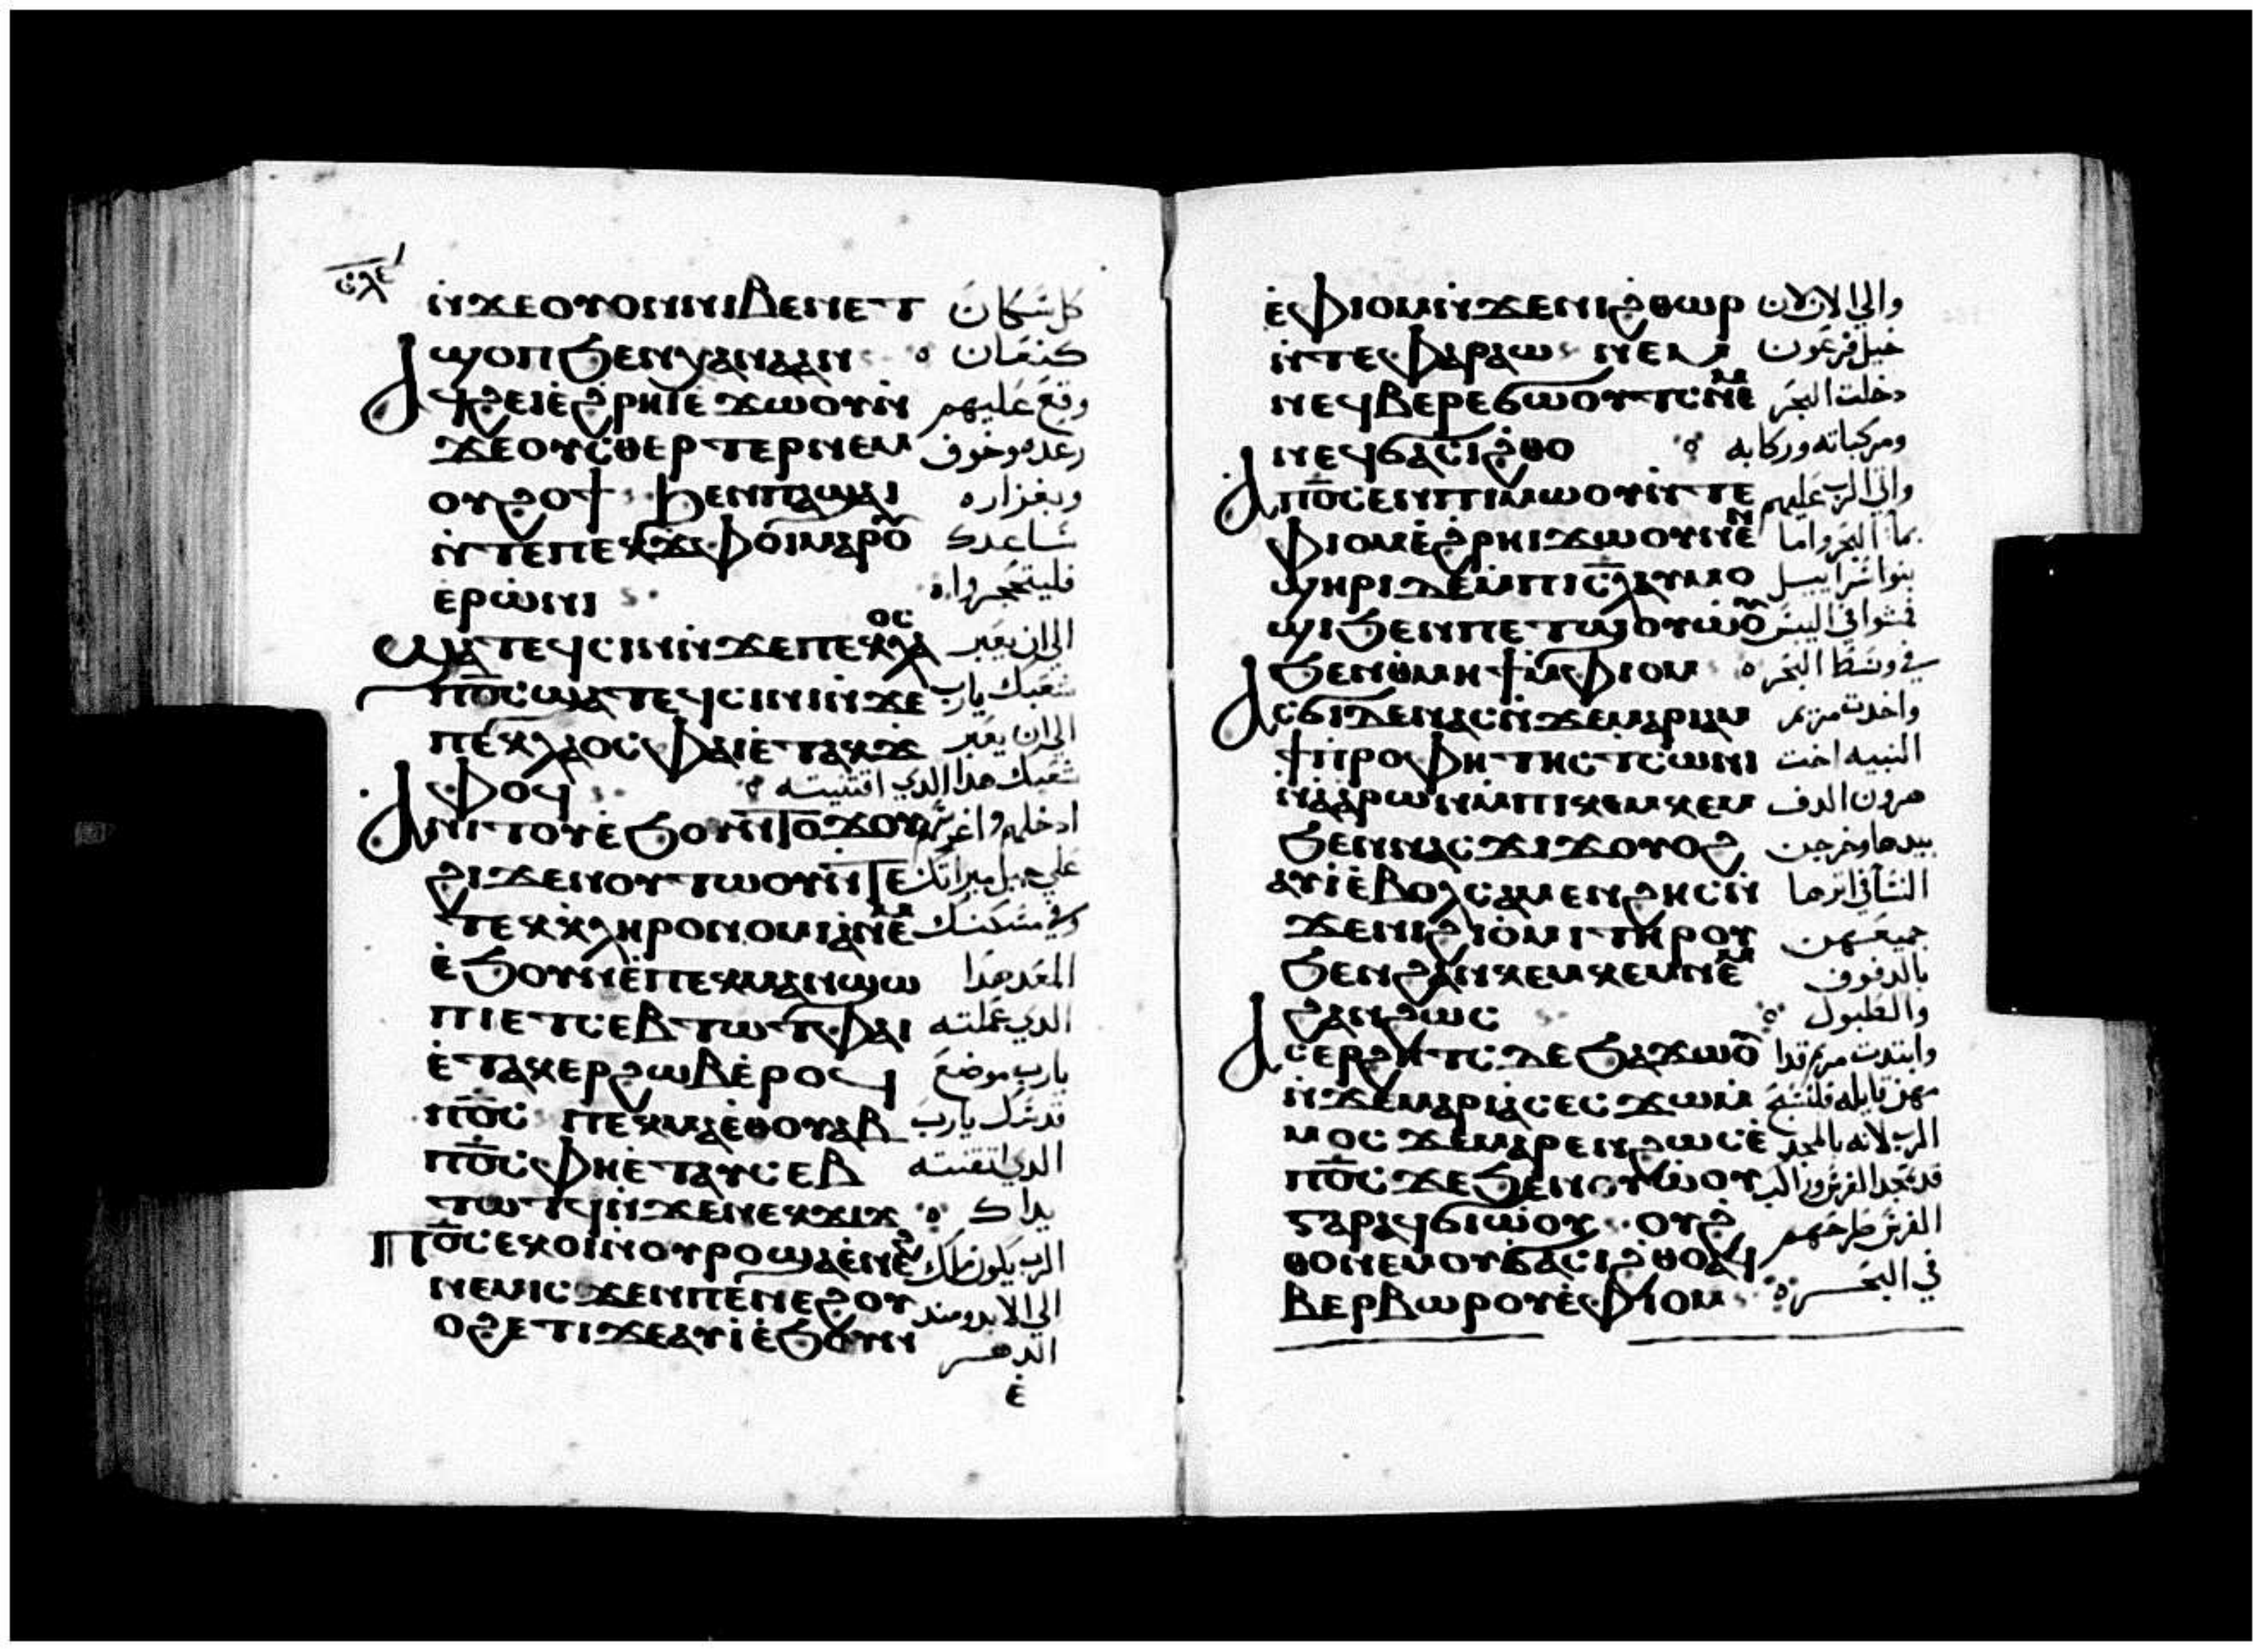 ⲛ̀ϫⲉⲟⲩⲟⲛⲛⲓⲃⲉⲛⲉⲧ كل سكان
ϣⲟⲡϧⲉⲛⲭⲁⲛⲁⲁⲛ كنعان
ⲁϥϩⲉⲓⲉ̀ϩⲣⲏⲓⲉ̀ϫⲱⲟⲩⲛ̀ وقع عليهم
ϫⲉⲟⲩⲥⲑⲉⲣⲧⲉⲣⲛⲉⲙ رعده وخوف
ⲟⲩϩⲟϯ ϧⲉⲛⲡⲁϣⲁⲓ وبغزاره
ⲛ̀ⲧⲉⲡⲉⲕϫⲫⲟⲓⲙⲁⲣⲟⲩ ساعدك
ⲉⲣⲱ̀ⲛⲓ فليتحجروا
ϣⲁⲧⲉϥⲥⲓⲛⲓⲛ̀ϫⲉⲡⲉⲕⲗⲁⲟⲥ الى ان يعبر
ⲡ̅ⲟ̅ⲥ̅ϣⲁⲧⲉϥⲥⲓⲛⲓⲛ̀ϫⲉ شعبك يارب
ⲡⲉⲕⲗⲁⲟⲥⲫⲁⲓⲉ̀ⲧⲁⲕϫ̀ الى ان يعبر
ⲫⲟϥ شعبك هدا الدي اقتنيته
ⲁⲛⲓⲧⲟⲩⲉ̀ϧⲟⲩⲛ ⲧⲟϫⲟⲩ ادخلهم واغرسهم
ϩⲓϫⲉⲛⲟⲩⲧⲱⲟⲩⲛ̀ⲧⲉ على جبل ميراتك
ⲧⲉⲕⲕ̀ⲗⲏⲣⲟⲛⲟⲙⲓⲁⲛⲉⲙ وفي مسكنك
ⲉ̀ϧⲟⲩⲛⲉ̀ⲡⲉⲕⲙⲁⲛϣⲱ المعد هدا
ⲡⲓⲉⲧⲥⲉⲃⲧⲱⲧⲫⲁⲓ الدي عملته
ⲉ̀ⲧⲁⲕⲉⲣϩⲱⲃⲉ̀ⲣⲟϥ يارب موضع
ⲡ̅ⲟ̅ⲥ̅ ⲡⲉⲕⲙⲁⲉ̀ⲑⲟⲩⲁⲃ قدسك يارب
ⲡ̅ⲟ̅ⲥ̅ⲫⲏⲉ̀ⲧⲁⲩⲥⲉⲃ الدي اتقنته
ⲧⲱⲧϥⲛ̀ϫⲉⲛⲉⲕϫⲓϫ يداك
ⲡ̅ⲟ̅ⲥ̅ⲉⲕⲟⲓⲛⲟⲩⲣⲟϣⲁⲉ̀ⲛⲉϩ الرب يكون ملك
ⲛⲉⲙⲓⲥϫⲉⲛⲡⲉⲛⲉϩⲟⲩ الى الابد ومند
ⲟϩⲉⲧⲓϫⲉⲁⲩⲓ̀ⲉ̀ϧⲟⲩⲛ الدهر
ⲉ̀
ⲉ̀ⲫⲓⲟⲙⲛ̀ϫⲉⲛⲓϩⲑⲱⲣ والي الان لان
ⲛ̀ⲧⲉⲫⲁⲣⲁⲱ ⲛⲉⲙ خيل فرعون
ⲛⲉϥⲃⲉⲣⲉϭⲱⲟⲩⲧⲥⲛⲉⲙ دخلت البحر
ⲛⲉϥϭⲁⲥⲓϩⲑⲟ ومركباته وركابه
ⲁⲡ̅ⲟ̅ⲥ̅ⲉⲛⲡⲓⲙⲱⲟⲩⲛ̀ⲧⲉ واتى الرب عليهم
ⲫⲓⲟⲙⲉ̀ϩⲣⲏⲓϫⲱⲟⲩⲛⲉⲛ بما البحر واما
ϣⲏⲣⲓⲇⲉⲙ̀ⲡⲓⲥ̅ⲗ̅ⲁⲩⲙⲟ بنوا اسراييل
ϣⲓϧⲉⲛⲡⲉⲧϣⲟⲩⲱ̀ⲟⲩ فمشوا في اليبس
ϧⲉⲛⲑⲙⲏϯⲙ̀ⲫⲓⲟⲙ في وسط البحر
ⲁⲥϭⲓⲇⲉⲛⲁⲥⲛ̀ϫⲉⲙⲁⲣⲓⲁⲙ واخدت مريم
ϯⲡⲣⲟⲫⲏⲧⲏⲥⲧⲥⲱⲛⲓ النبيه اخت
ⲛ̀ⲁⲁⲣⲱⲛⲙ̀ⲡⲓⲕⲉⲙⲕⲉⲙ هرون الدف
ϧⲉⲛⲛⲁⲥϫⲓϫⲟⲩⲟϩ بيدها وخرجن
ⲁⲩⲓ̀ⲉ̀ⲃⲟⲗⲥⲁⲙⲉⲛϩⲏⲥⲛ̀ النسا في اثرها
ϫⲉⲛⲓϩⲓⲟ̀ⲙⲓⲧⲏⲣⲟⲩ جميعهن
ϧⲉⲛϩⲁⲛⲕⲉⲙⲕⲉⲙⲛⲉⲙ بالدفوف
ϩⲁⲛϩⲱⲥ والطبول
ⲁⲥⲉⲣϩⲏⲧⲥⲇⲉϧⲁϫⲱⲟⲩ وابتدت مريم قدا
ⲛ̀ϫⲉⲙⲁⲣⲓⲁⲥⲉⲥϫⲱⲙ̀ مهن قايله فلنسبح
ⲙⲟⲥϫⲉⲙⲁⲣⲉⲛϩⲱⲥⲉ̀ الرب لانه بالمجد
ⲡ̅ⲟ̅ⲥ̅ϫⲉϧⲉⲛⲟⲩⲱ̀ⲟⲩ قد تمجد الفرس وراكب
ⲅⲁⲣⲁϥϭⲓⲱ̀ⲟⲩ ⲟⲩϩ̀ الفرس طرحهم
ⲑⲟⲛⲉⲙⲟⲩϭⲁⲥⲓϩⲑⲟⲁϥ في البحر
ⲃⲉⲣⲃⲱⲣⲟⲩⲉ̀ⲫⲓⲟⲙ